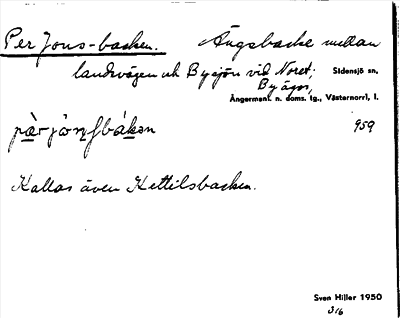 Per Jons-backen. Ängsbacke mellan
landsvägen och Bysjön vid Noret; Sidensjö sn,
By ägor,
Ångermanl. n. doms. tg., Västernorrl, l.
pὰr jὸnsbákən 959
Kallas även Kettilsbacken.
Sven Hiller 1950
316